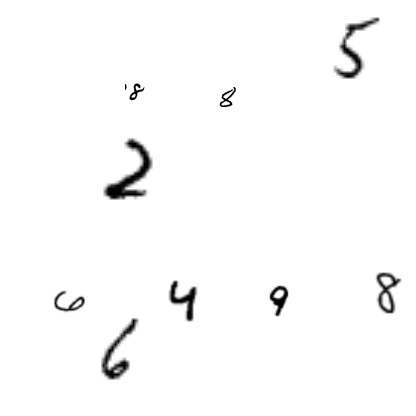 5
8 8
2
6 4 9 8
6